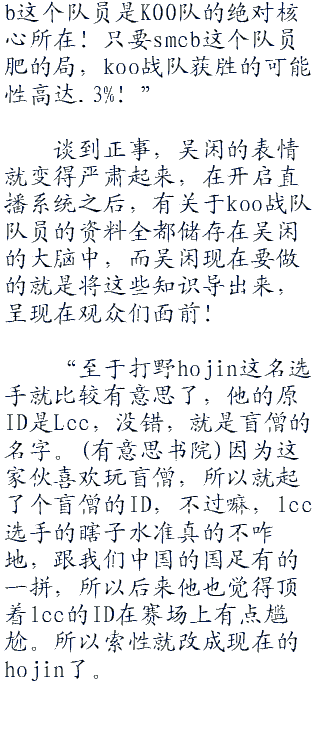 b这个队员是KOO队的绝对核
心所在！只要smcb这个队员
肥的局，koo战队获胜的可能
性高达.3%！”
谈到正事，吴闲的表情
就变得严肃起来，在开启直
播系统之后，有关于koo战队
队员的资料全都储存在吴闲
的大脑中，而吴闲现在要做
的就是将这些知识导出来，
呈现在观众们面前！
“至于打野hojin这名选
手就比较有意思了，他的原
ID是Lcc，没错，就是盲僧的
名字。(有意思书院)因为这
家伙喜欢玩盲僧，所以就起
了个盲僧的ID，不过嘛，lcc
选手的瞎子水准真的不咋
地，跟我们中国的国足有的
一拼，所以后来他也觉得顶
着lcc的ID在赛场上有点尴
尬。所以索性就改成现在的
hojin了。